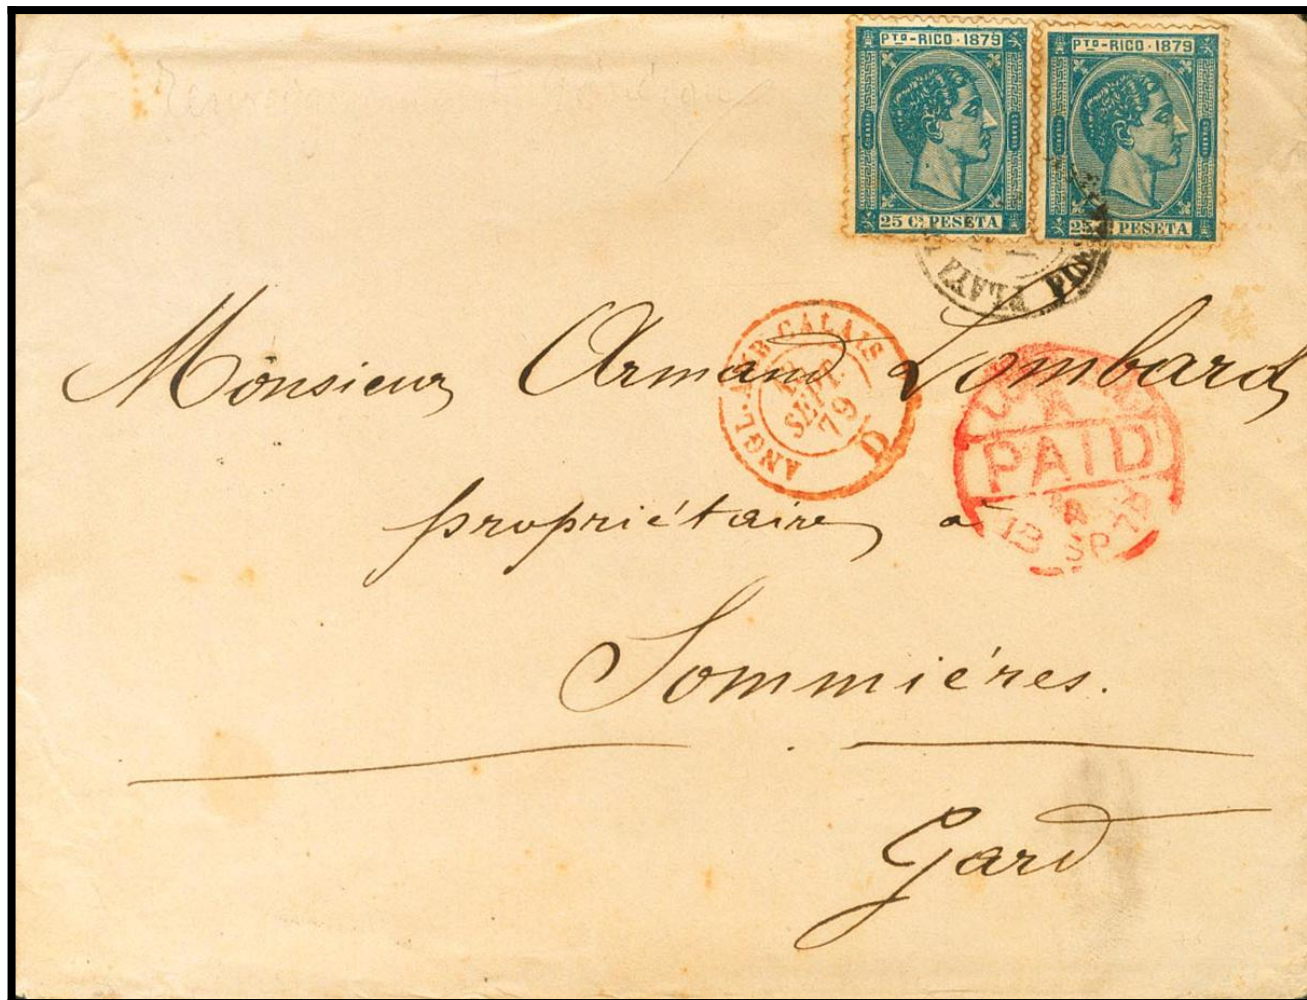 PTO-RICO·1879
25 Cs. PESETA
PTO-RICO·1879
PESETA
PLAYA
ANGL. AMB. CALAIS
SEPT.
79
D
PAID
SP
Monsieur Armand Lombard
propriétaire à
Sommiéres.
Gard